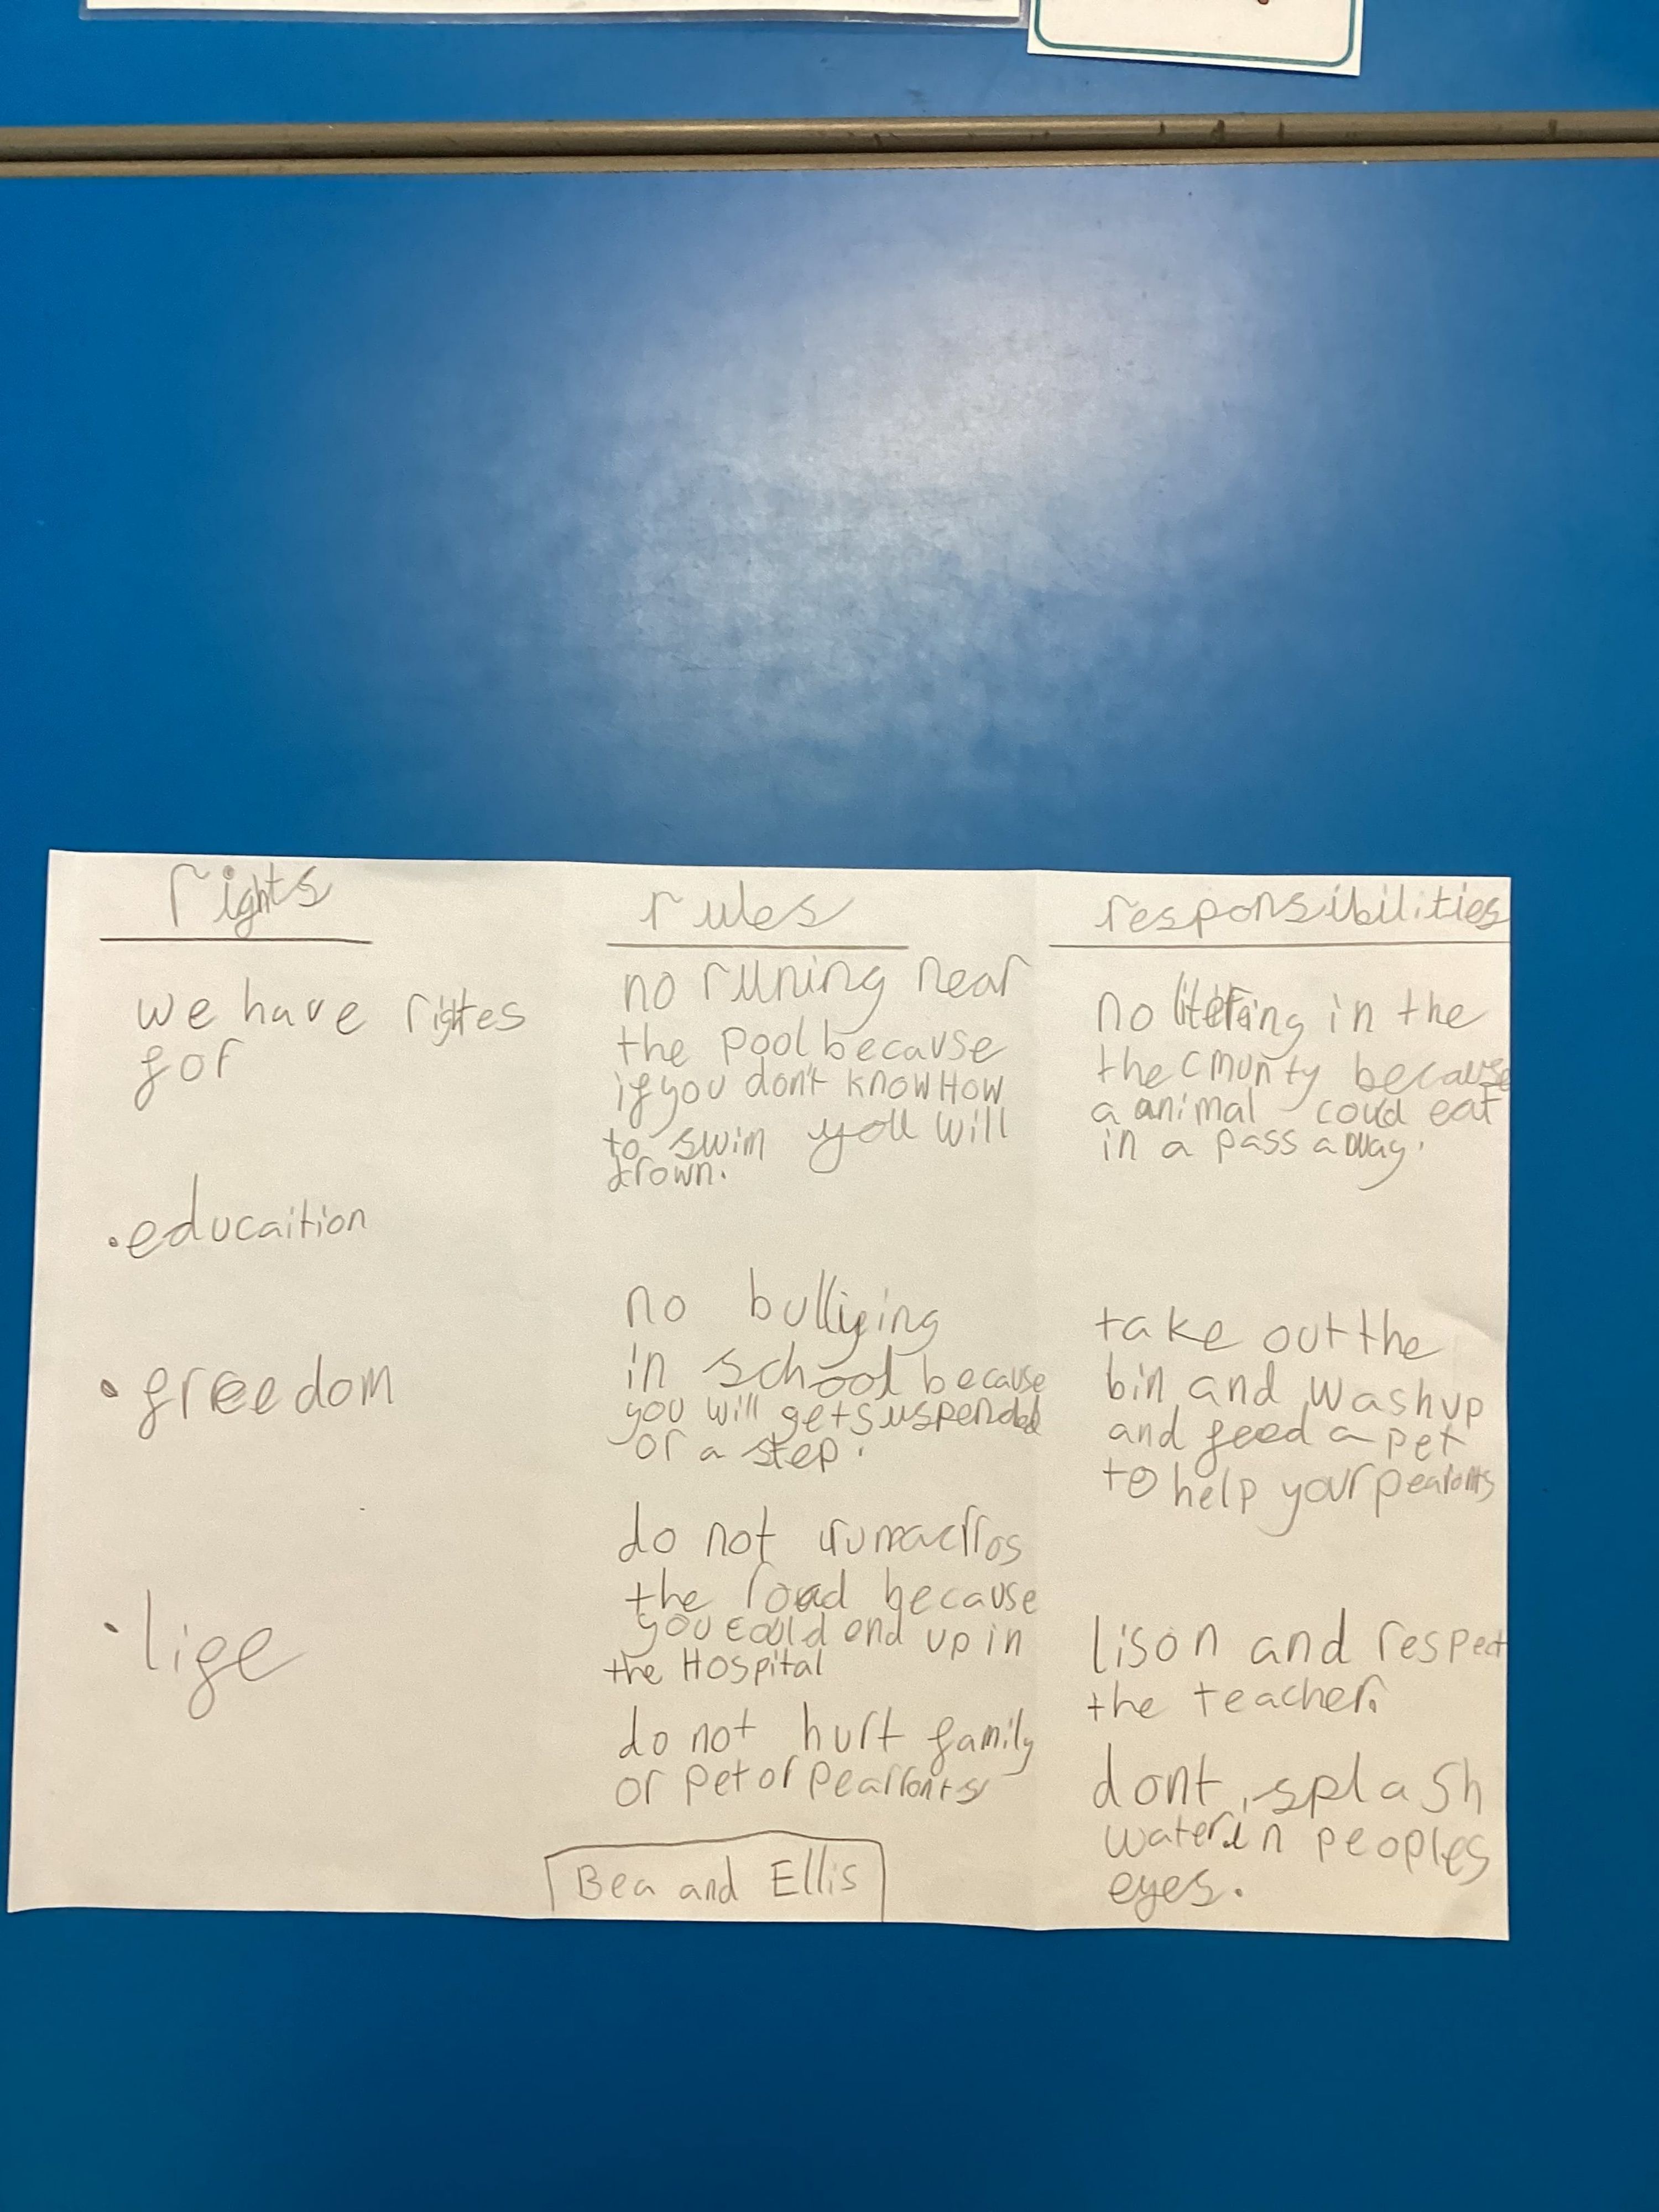 rights
we have rightes
for
• educaition
• freedom
• life
rules
no runing near
the pool because
if you don't know How
to swim you will
drown.
no bullying
in school because
you will get suspended
or a step.
do not run acrros
the road because
you could end up in
the Hospital
do not hurt family
or pet or pearronts
responsibilities
no litering in the
the cmunty because
a animal could eat
in a pass away.
take out the
bin and wash up
and feed a pet
to help your pearonts
lison and respect
the teacher.
dont splash
water in peoples
eyes.
Bea and Ellis